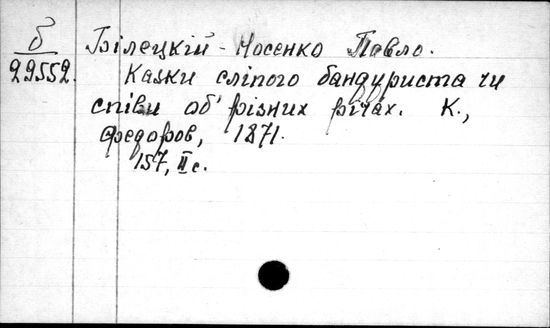 б
29552.
Білецкій-Носенко Павло.
Казки сліпого бандуриста чи
співи об' різних річах. К.,
Федоров, 1871.
157, II с.